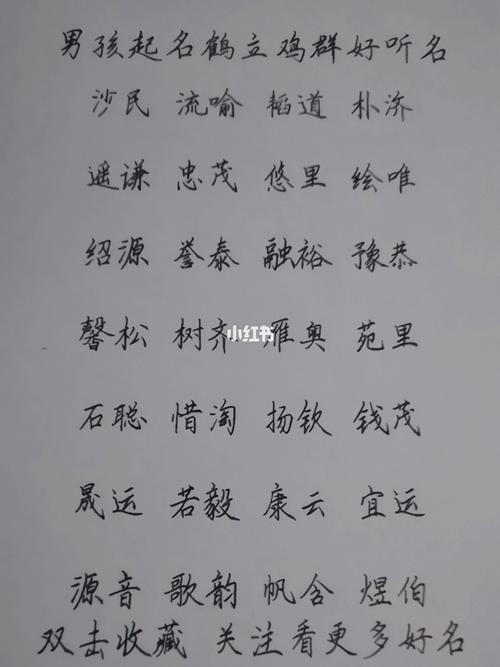 男孩起名鹤立鸡群好听名
沙民 流喻 韬道 朴济
遥谦 忠茂 悠里 绘唯
绍源 誉泰 融裕 豫恭
馨松 树齐 雁奥 苑里
小红书
石聪 惜淘 扬钦 钱茂
晟运 若毅 康云 宜运
源音 歌韵 帆含 煜伯
双击收藏 关注看更多好名